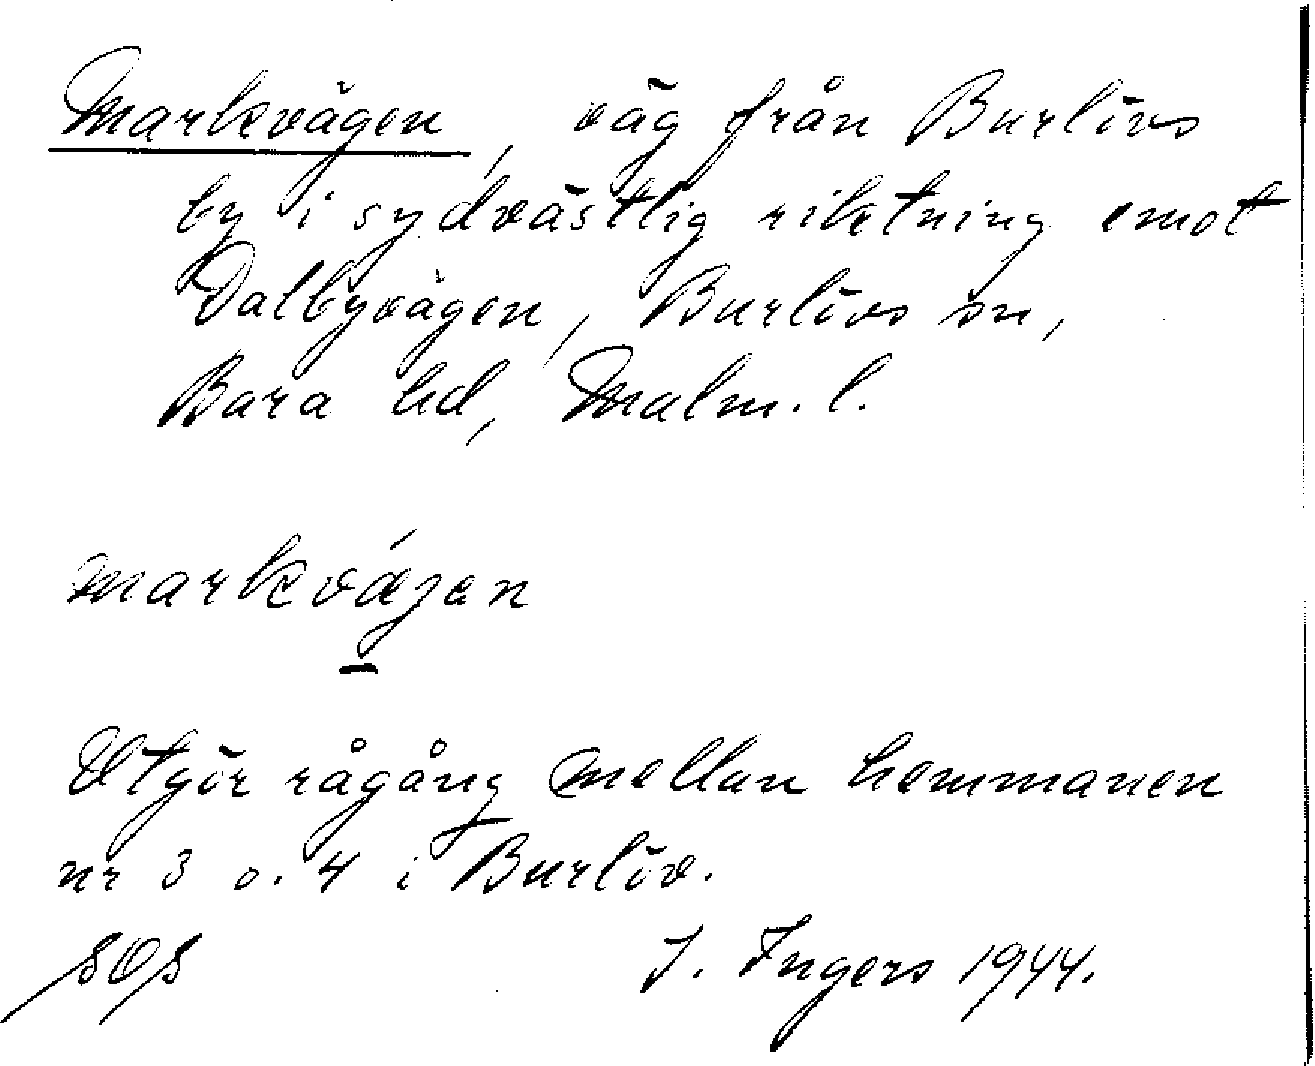 Markvägen, väg från Burlövs
by i sydvästlig riktning emot
Dalbyvägen, Burlövs sn,
Bara hd, Malm. l.
markvä́gen
Utgör rågång mellan hemmanen
nr 3 o. 4 i Burlöv.
I. Ingers 1944.